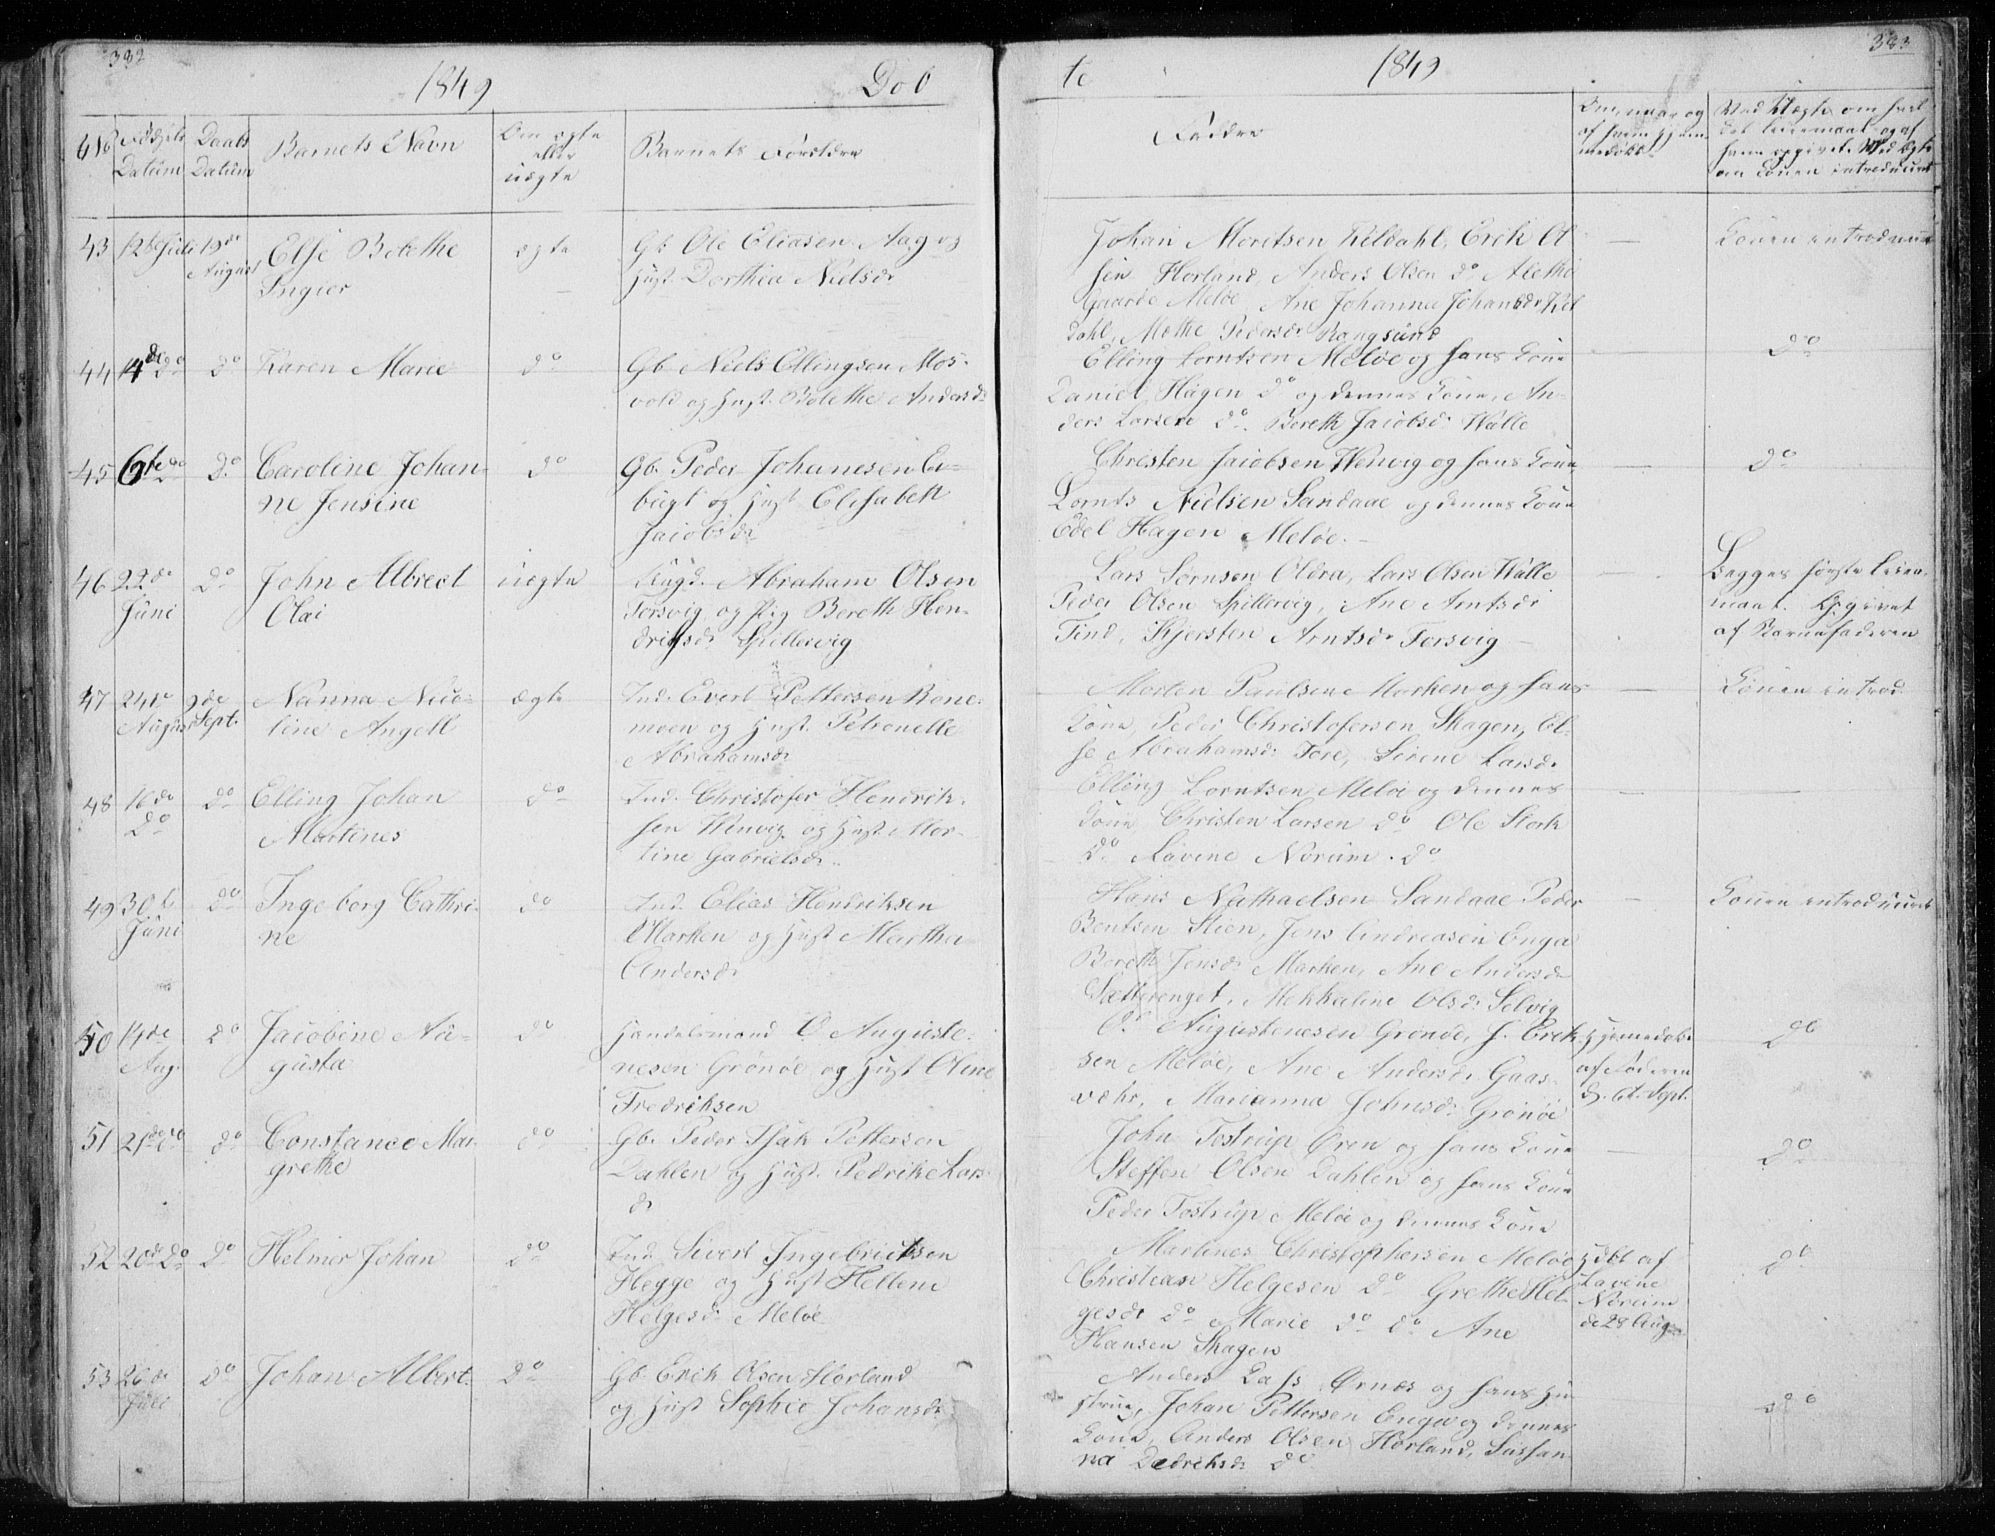 382
1849
Døb
Fødsels
Datum
Daabs
Datum
Barnets Navn
Om ægte
eller
uægte
Barnets Forældre
43 12te Juli 19de
August
Else Bolethe
Inger
ægte
Gb Ole Eliasen Aag og
Hust. Dorthea Nielsdr
44 14de do do Karen Marie do
Gb. Niels Ellingsen Mos-
vold og Hust. Bolethe Andersdr
45 6te do do Caroline Johan-
ne Jensine
do
Gb. Peder Johanesen
bugt og Hust Elisabeth
Jacobsdr
46 22de
Juni
do John Albrect
Olai
uægte
Ungk. Abraham Olsen
Forsvig og Pig Bereth Hen-
driksdr Spillervig
47 24de
August
9de
Sept.
Nanna Nico-
line Angell
ægte
Ind. Evert Pettersen Rone-
moen og Hust. Petronelle
Abrahamsdr
48 16de
do
do Elling Johan
Martines
do
Ind. Christofer Hendrik-
sen Wenvig og Hust Mar-
tine Gabrielsdr
49 30te
Juni
do Ingeborg Cathri-
ne
do
Ind. Elias Hendriksen
Marken og Hust Martha
Andersdr
50 14de
Aug.
do Jacobine Au-
gusta
do
Handelsmand O. Augusti-
nesen Grønøe og Hust Oline
Fredriksen
51 21de do do Constance Mar-
grethe
do
Gb. Peder Isak Pettersen
Dahlen og Hust. Pedrike Lars-
dr
52 20de do do Helmer Johan do
Ind. Sivert Ingebrictsen
Hegge og Hust Hellene
Helgesdr Meløe
53 26de
Juli
do Johan Albert do
Gb. Erik Olsen Horland
og Hust Sophie Johansdr
383
te
1849
Faddre
Om, naar og
af hvem hjem-
medøbt
Ved Uægte om hvil-
det leiermaal og af
hvem opgivet. Ved ægte
om Konen introduceret
Johan Moretsen Kildahl, Erik Ol-
sen Horland, Anders Olsen do Alethe
Gaarde Meløe, Ane Johanna Johansdr Kil
dahl, Methe Pedersdr Rangsund
Konen introduceret
Elling Lorntsen Meløe og hans Kone
Daniel Hagen do og dennes Kone, An-
ders Larsen do Bereth Jacobsdr Walle
do
Christen Jacobsen Wenvig og hans Kone,
Lornts Nielsen Sandaae og dennes Kone
Edel Hagen Meløe.
do
Lars Sørnsen Oldra, Lars Olsen Walle
Peder Olsen Spillervig, Ane Arntsdr
Tind, Kjersten Arntsdr Forsvig
Begges første Leier-
maal. Opgivet
af Barnefaderen
Morten Paulsen Marken og hans
Kone, Peder Christofersen Skagen, El-
se Abrahamsdr Fore, Sirene Larsdr
Konen introd.
Elling Lorntsen Meløe og dennes
Kone Christen Larsen do Ole Stork
do Lavine Norum do
Hans Nathaelsen Sandaae Peder
Bentsen Stien, Jens Andreasen Enga
Bereth Jensdr Marken, Ane Andersdr
Sætterenget, Mekkeline Olsdr Selvig
Konen introduceret
O. Augustinesen Grønøe, J. Erik-
sen Meløe, Ane Andersdr Gaas-
vær, Marianna Johnsdr Grønøe
Hjemmedøbt
af Faderen
d. 6te Sept.
do
John Tostrup Øren og hans Kone
Steffen Olsen Dahlen og hans Kone
Peder Tostrup Meløe og dennes Kone
do
Martines Christophersen Meløe
Christian Helgesen do Grethe Hel-
gesdr do Marie do do Ane
Hansen Skagen
Hdbt af
Lavine
Norum
de 28 Aug.
do
Anders Dass Ørnæs og hans Hu-
strue, Johan Pettersen Enga og dennes
Kone, Anders Olsen Horland, Sussan-
na Dedriksdr do
do